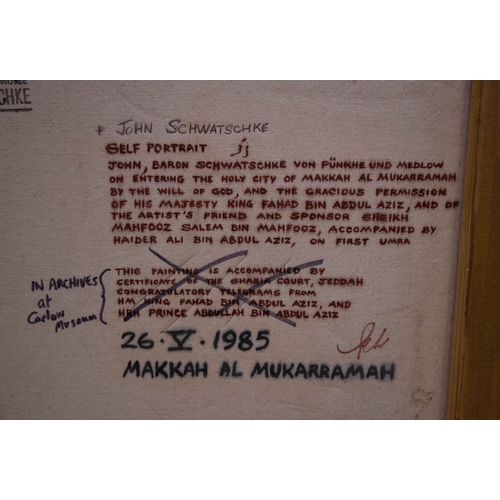 CHKE
* JOHN SCHWATSCHKE
SELF PORTRAIT
JOHN, BARON SCHWATSCHKE VON PÜNKHE UND MEDLOW
ON ENTERING THE HOLY CITY OF MAKKAH AL MUKARRAMAH
BY THE WILL OF GOD, AND THE GRACIOUS PERMISSION
OF HIS MAJESTY KING FAHAD BIN ABDUL AZIZ, AND OF
THE ARTIST'S FRIEND AND SPONSOR SHEIKH
MAHFOOZ SALEM BIN MAHFOOZ, ACCOMPANIED BY
HAIDER ALI BIN ABDUL AZIZ, ON FIRST UMRA
IN ARCHIVES
at
Carlow
Museum
THIS PAINTING IS ACCOMPANIED BY
CERTIFICATE OF THE SHARIA COURT, JEDDAH
CONGRATULATORY TELEGRAMS FROM
HM KING FAHAD BIN ABDUL AZIZ, AND
HRH PRINCE ABDULLAH BIN ABDUL AZIZ
26·V·1985
MAKKAH AL MUKARRAMAH